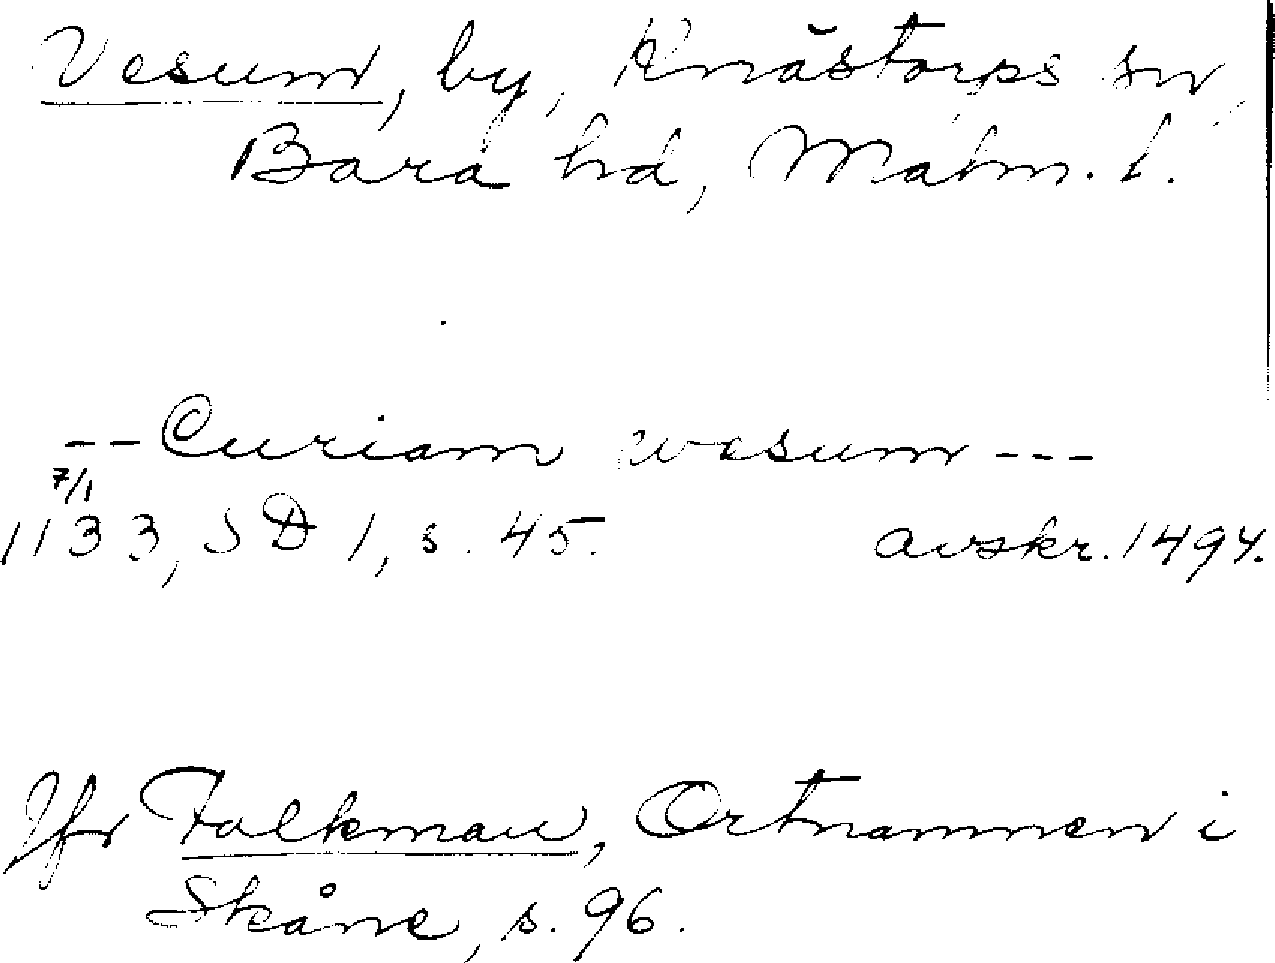 Vesum, by, Knästorps sn,
Bara hd, Malm. l.
-- Curiam wesum ---
7/1
1133, SD 1, s. 45. avskr. 1494.
Jfr Falkman, Ortnamnen i
Skåne, s. 96.